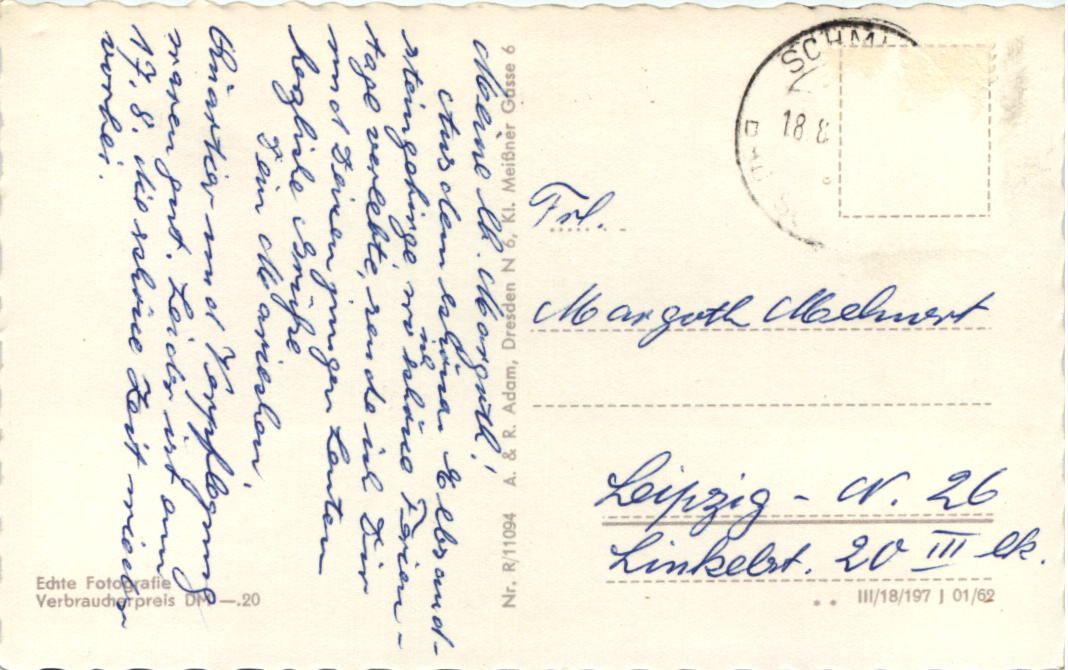 Meine lb. Margoth!
Aus dem schönen Elbsand-
steingebirge, wo ich schöne Ferien-
tage verlebte, sende ich Dir
und Deinen jungen Leuten
herzliche Grüße
Dein Mariechen.
Quartier und Verpflegung
waren gut. Leider ist am
17. 8. die schöne Zeit wieder
vorbei.
Echte Fotografie
Verbraucherpreis DM —.20
Nr. R/11094 A. & R. Adam, Dresden N 6, Kl. Meißner Gasse 6
SCHMI
18 8
Frl.
Margoth Mehnert
Leipzig - N. 26
Linkelst. 20 III lk.
III/18/197 J 01/62